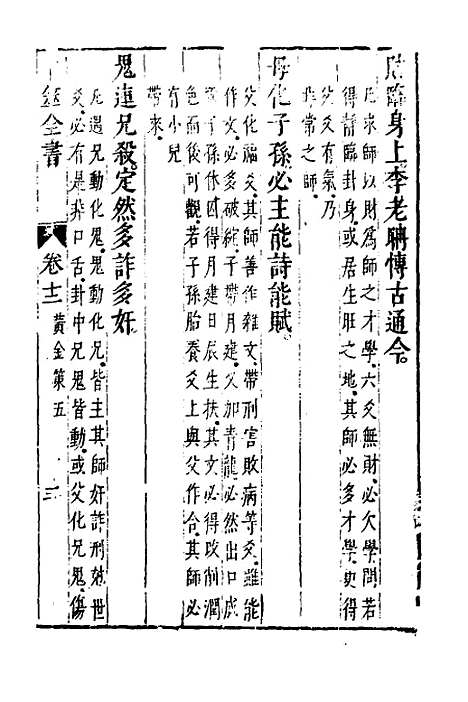 財臨身上李老聃博古通今。
凡求師以財為師之才學。六爻無財。必欠學問若
得靜臨卦身。或居生旺之地。其師必多才學。更得
父爻有氣。乃
非常之師。
母化子孫必主能詩能賦。
父化福爻。其師善作雜文。帶刑害敗病等爻。雖能
作文。必多破綻。子帶月建。父加青龍。必然出口成
章。子孫休囚得月建日辰生扶。其文必得改削潤
色而後可觀。若子孫胎養爻上與父作合。其師必
有小兒
帶來。
鬼連兄殺。定然多詐多奸。
凡遇兄動化鬼。鬼動化兄。皆主其師奸詐。刑尅世
爻。必有是非口舌。卦中兄鬼皆動。或父化兄鬼。傷
全書 卷十二 黃金策五